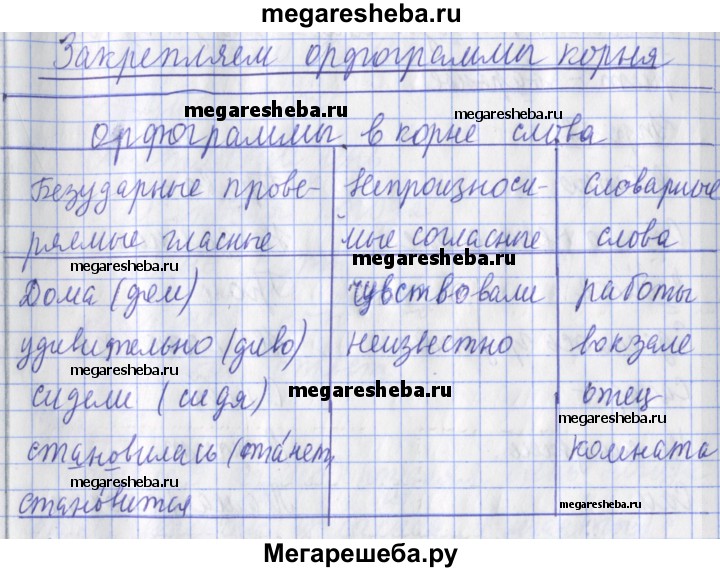 megaresheba.ru
Закрепляем орфограммы корня
megaresheba.ru
megaresheba.ru
орфограммы в корне слова
Безударные прове- Непроизноси- Словарные
ряемые гласные мые согласные слова
megaresheba.ru
megaresheba.ru
Дома (дом) чувствовали работы
удивительно (диво) неизвестно вокзале
megaresheba.ru
megaresheba.ru
сидели (сидя) отец
megaresheba.ru
становилась (ста́нет, комната
megaresheba.ru
стано́вится
megaresheba.ru
Мегарешеба.ру